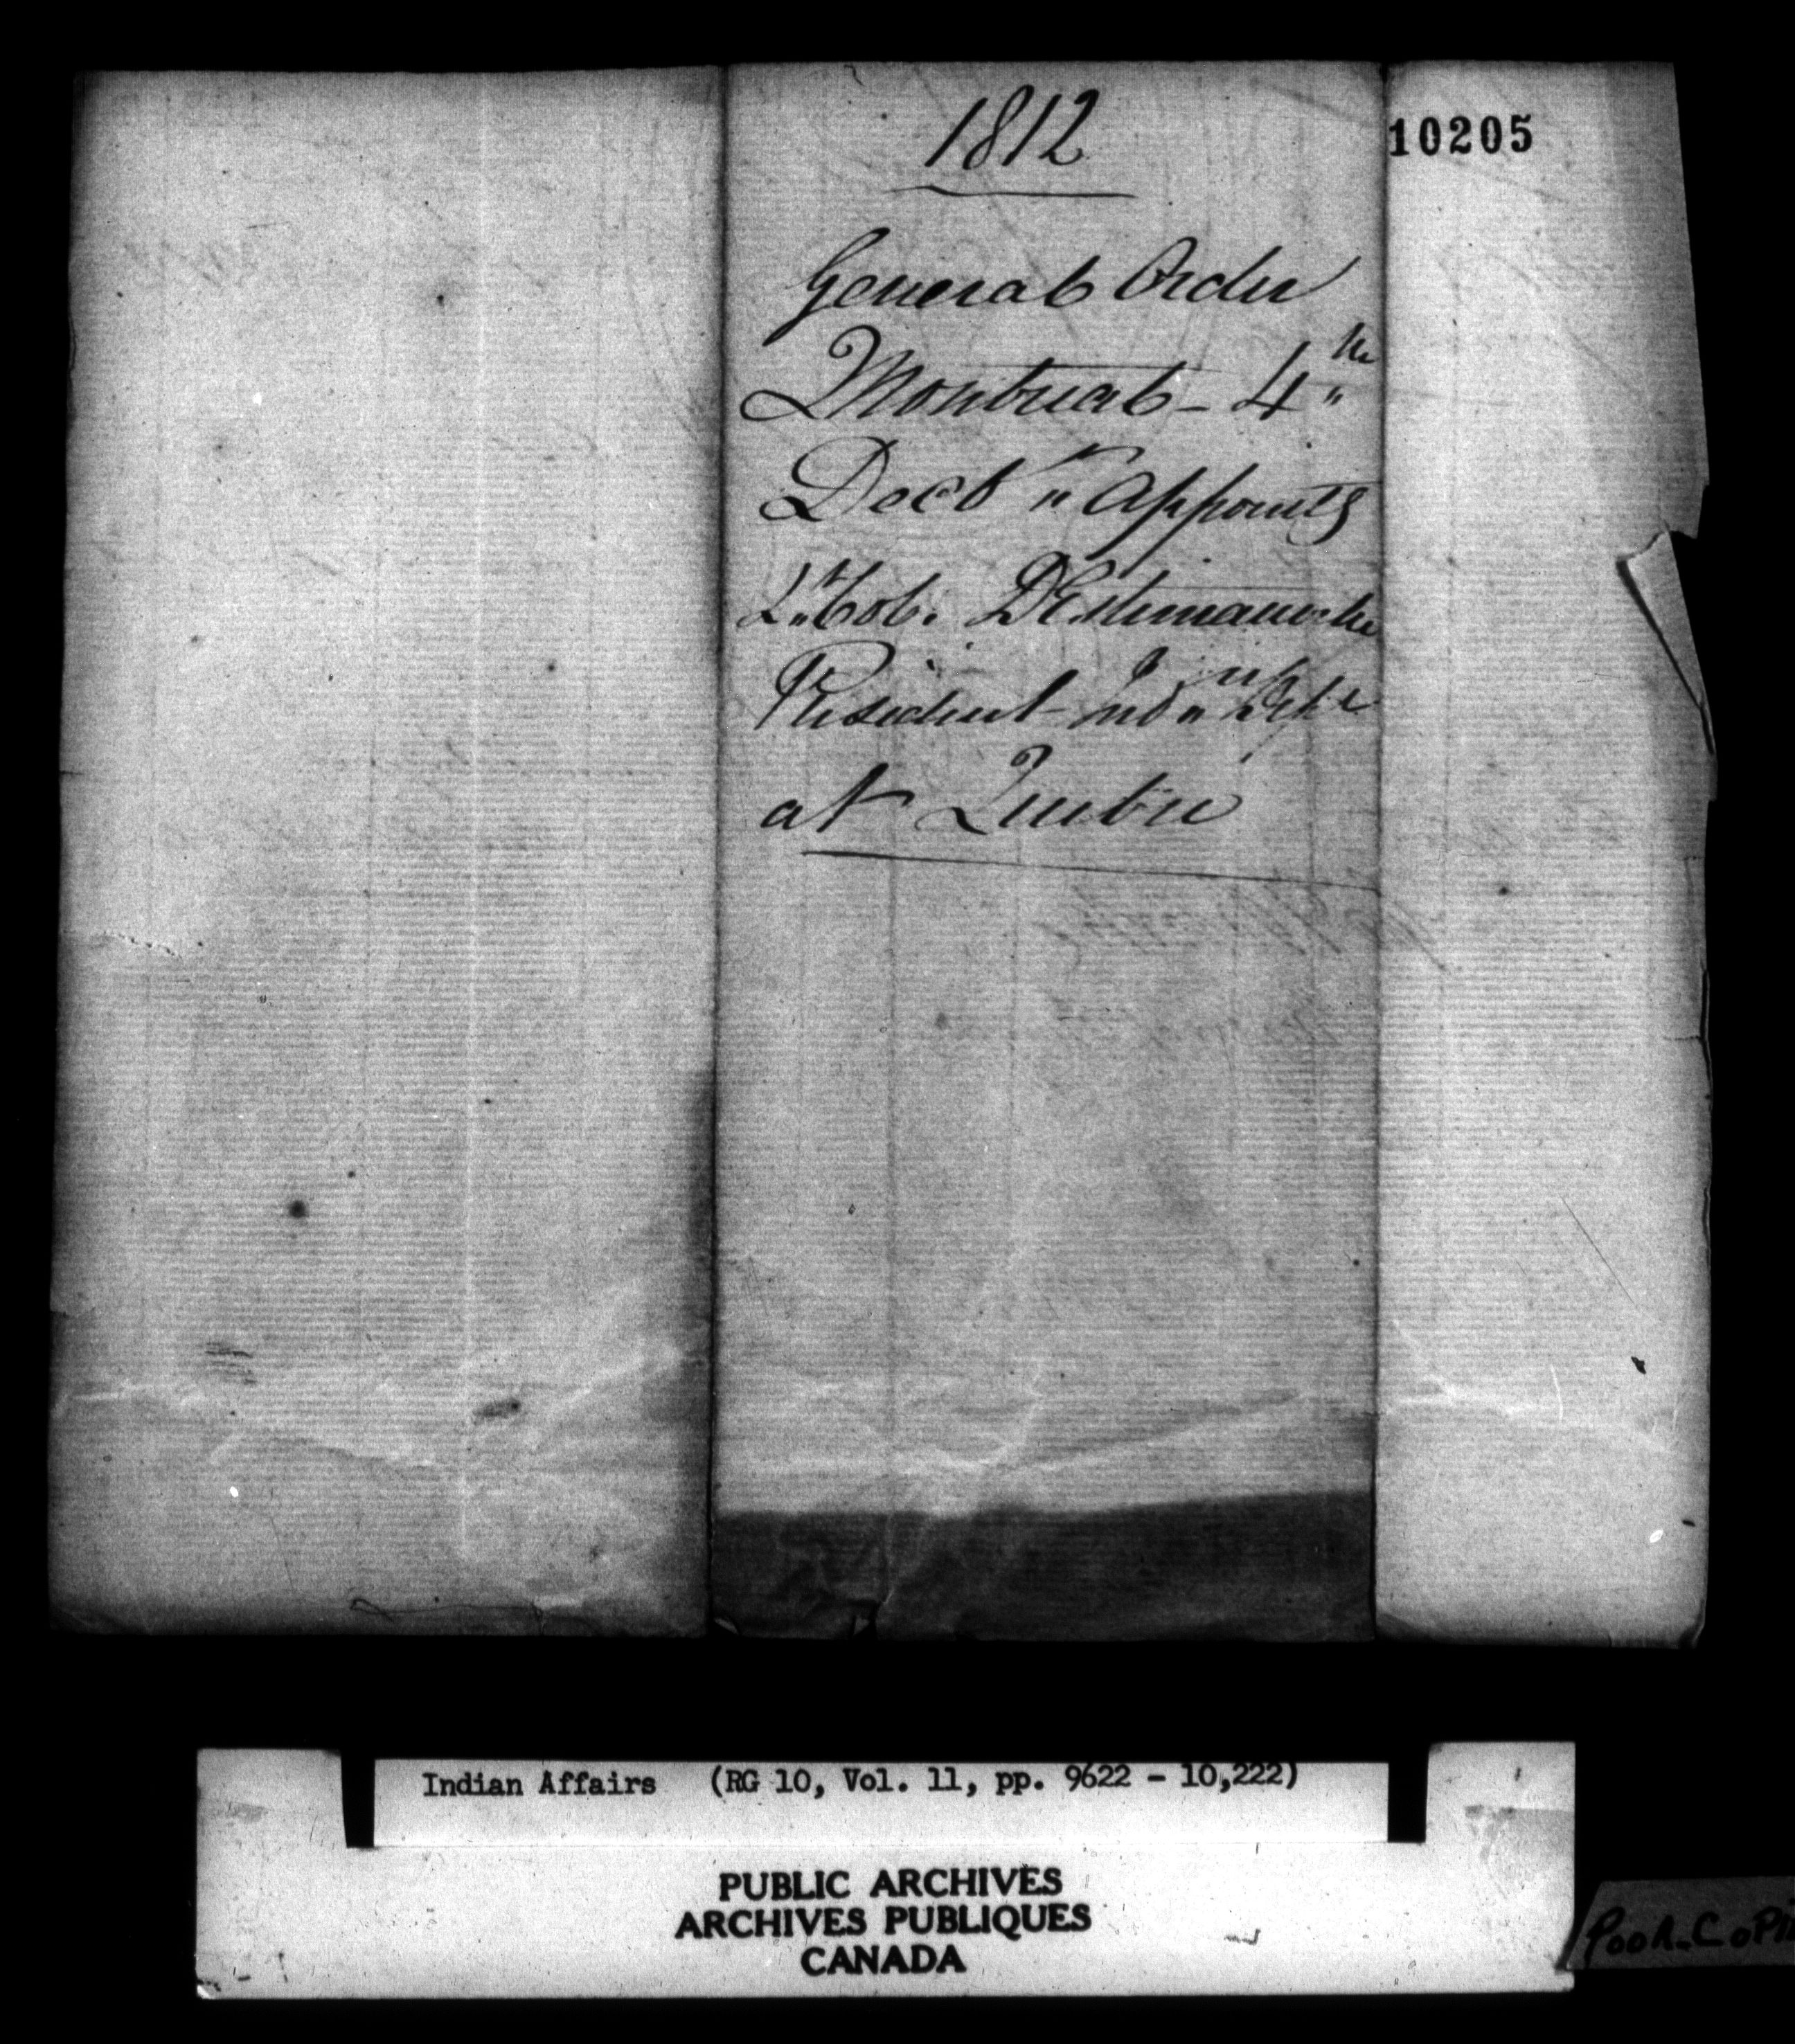 1812
10205
General Order
Montreal - 4th
Decr appointg
Lt. Col. DEshimauville
President Ind Dept
at Quebec
Indian Affairs (RG 10, Vol. 11, pp. 9622 - 10,222)
PUBLIC ARCHIVES
ARCHIVES PUBLIQUES
CANADA